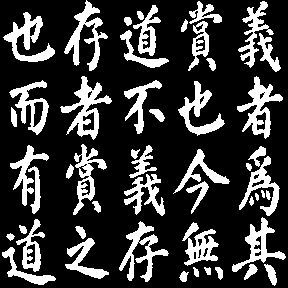 義者爲其
賞也今無
道不義存
存者賞之
也而有道